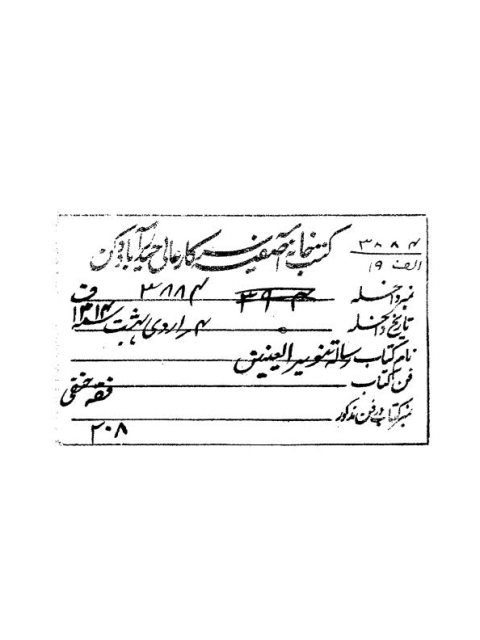 ۳۸۸۴
الف ۱۹
کتب خانہ آصفیہ سرکار عالی حیدرآباد دکن
نمبر داخلہ ۳۸۸۴ ق
تاریخ داخلہ ۴ اردی بہشت ۱۳۱۴
نام کتاب رسالہ تنویر العینین
فن کتاب فقہ حنفی
نمبر کتاب در فن مذکور ۲۰۸